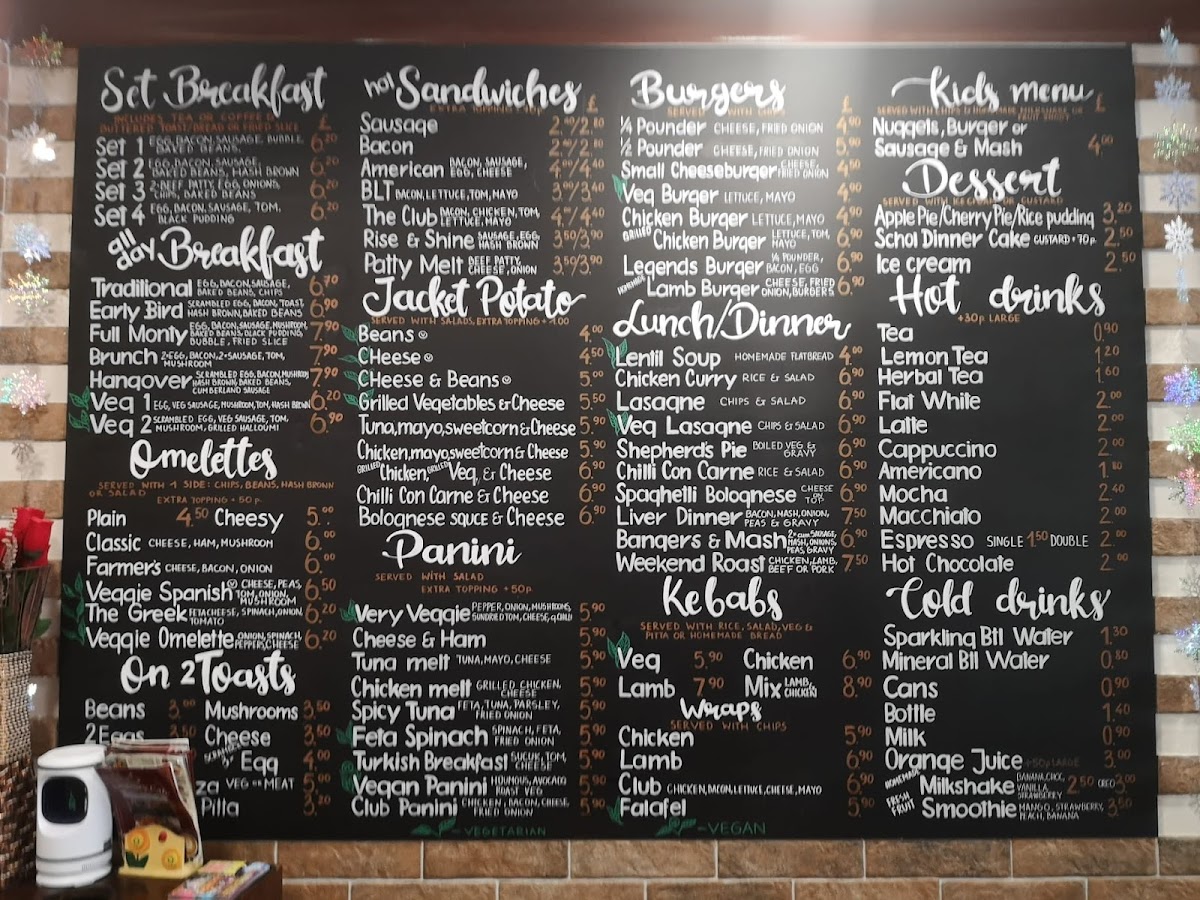 Set Breakfast
INCLUDES TEA OR COFFEE &
BUTTERED TOAST/BREAD OR FRIED SLICE £
Set 1 EGG, BACON, SAUSAGE, BUBBLE, BAKED BEANS, 6.20
Set 2 EGG, BACON, SAUSAGE, BAKED BEANS, HASH BROWN 6.20
Set 3 2·BEEF PATTY, EGG, ONIONS, CHIPS, BAKED BEANS 6.20
Set 4 EGG, BACON, SAUSAGE, TOM, BLACK PUDDING 6.20
all day Breakfast
Traditional EGG, BACON, SAUSAGE, BAKED BEANS, CHIPS 6.70
Early Bird SCRAMBLED EGG, BACON, TOAST, HASH BROWN, BAKED BEANS 6.90
Full Monty EGG, BACON, SAUSAGE, MUSHROOM, BAKED BEANS, BLACK PUDDING, BUBBLE, FRIED SLICE 7.90
Brunch 2·EGG, BACON, 2·SAUSAGE, TOM, MUSHROOM 7.90
Hangover SCRAMBLED EGG, BACON, MUSHROOM, HASH BROWN, BAKED BEANS, CUMBERLAND SAUSAGE 7.90
Veg 1 EGG, VEG SAUSAGE, MUSHROOM, TOM, HASH BROWN 6.20
Veg 2 SCRAMBLED EGG, VEG SAUSAGE, TOM, MUSHROOM, GRILLED HALLOUMI 6.90
Omelettes
SERVED WITH 1 SIDE: CHIPS, BEANS, HASH BROWN
OR SALAD
EXTRA TOPPING + 50p.
Plain 4.50 Cheesy 5.00
Classic CHEESE, HAM, MUSHROOM 6.00
Farmer's CHEESE, BACON, ONION 6.00
Veggie Spanish CHEESE, PEAS, TOM, ONION, MUSHROOM 6.50
The Greek FETA CHEESE, SPINACH, ONION, TOMATO 6.20
Veggie Omelette ONION, SPINACH, PEPPER, CHEESE 6.20
On 2 Toasts
Beans 3.00 Mushrooms 3.50
2 Eggs Cheese 3.50
SCRAMBLED 3· Egg 4.00
za VEG OR MEAT 5.00
Pitta 3.20
hot Sandwiches
EXTRA TOPPING + 50p £
Sausage 2.40/2.80
Bacon 2.40/2.80
American BACON, SAUSAGE, EGG, CHEESE 4.00/4.40
BLT BACON, LETTUCE, TOM, MAYO 3.00/3.40
The Club BACON, CHICKEN, TOM, LETTUCE, MAYO 4.00/4.40
Rise & Shine SAUSAGE, EGG, HASH BROWN 3.50/3.90
Patty Melt BEEF PATTY, CHEESE, ONION 3.50/3.90
Jacket Potato
SERVED WITH SALADS, EXTRA TOPPING + 1.00
Beans 4.00
Cheese 4.50
Cheese & Beans 5.00
Grilled Vegetables & Cheese 5.50
Tuna, mayo, sweetcorn & Cheese 5.90
Chicken, mayo, sweetcorn & Cheese 5.90
GRILLED Chicken, GRILLED Veg, & Cheese 6.90
Chilli Con Carne & Cheese 6.90
Bolognese sauce & Cheese 6.90
Panini
SERVED WITH SALAD
EXTRA TOPPING + 50p.
Very Veggie PEPPER, ONION, MUSHROOMS, SUNDRIED TOM, CHEESE, 5.90
Cheese & Ham 5.90
Tuna melt TUNA, MAYO, CHEESE 5.90
Chicken melt GRILLED CHICKEN, CHEESE 5.90
Spicy Tuna FETA, TUNA, PARSLEY, FRIED ONION 5.90
Feta Spinach SPINACH, FETA, FRIED ONION 5.90
Turkish Breakfast SUCUK, TOM, CHEESE 5.90
Vegan Panini HOUMOUS, AVOCADO, ROAST VEG 5.90
Club Panini CHICKEN, BACON, CHEESE, FRIED ONION 5.90
- VEGETARIAN
Burgers
SERVED WITH CHIPS £
¼ Pounder CHEESE, FRIED ONION 4.90
½ Pounder CHEESE, FRIED ONION 5.90
Small Cheeseburger CHEESE, FRIED ONION 4.50
Veg Burger LETTUCE, MAYO 4.90
Chicken Burger LETTUCE, MAYO 4.90
GRILLED Chicken Burger LETTUCE, TOM, MAYO 6.90
Legends Burger ¼ POUNDER, BACON, EGG 6.90
HOMEMADE Lamb Burger CHEESE, FRIED ONION, BURGERS 6.90
Lunch/Dinner
Lentil Soup HOMEMADE FLATBREAD 4.00
Chicken Curry RICE & SALAD 6.90
Lasagne CHIPS & SALAD 6.90
Veg Lasagne CHIPS & SALAD 6.90
Shepherd's Pie BOILED VEG & GRAVY 6.90
Chilli Con Carne RICE & SALAD 6.90
Spaghetti Bolognese CHEESE ON TOP 6.90
Liver Dinner BACON, MASH, ONION, PEAS & GRAVY 7.50
Bangers & Mash 2× CUM SAUSAGE, MASH, ONIONS, PEAS, GRAVY 6.90
Weekend Roast CHICKEN, LAMB, BEEF OR PORK 7.50
Kebabs
SERVED WITH RICE, SALAD, VEG &
PITTA OR HOMEMADE BREAD
Veg 5.90 Chicken 6.90
Lamb 7.90 Mix LAMB, CHICKEN 8.90
Wraps
SERVED WITH CHIPS
Chicken 5.90
Lamb 6.90
Club CHICKEN, BACON, LETTUCE, CHEESE, MAYO 6.90
Falafel 5.90
- VEGAN
Kids menu
£
Nuggets, Burger or
Sausage & Mash 4.00
Dessert
SERVED WITH ICE CREAM OR CUSTARD
Apple Pie/Cherry Pie/Rice pudding 3.20
Schol Dinner Cake CUSTARD + 70p. 2.50
Ice cream 2.50
Hot drinks
+30p. LARGE
Tea 0.90
Lemon Tea 1.20
Herbal Tea 1.60
Flat White 2.00
Latte 2.00
Cappuccino 2.00
Americano 1.80
Mocha 2.40
Macchiato 2.00
Espresso SINGLE 1.50 DOUBLE 2.00
Hot Chocolate 2.00
Cold drinks
Sparkling Btl Water 1.30
Mineral Btl Water 0.80
Cans 0.90
Bottle 1.40
Milk 0.90
Orange Juice +50p LARGE 3.00
HOMEMADE Milkshake BANANA, CHOC, VANILLA, STRAWBERRY 2.50 OREO 3.00
FRESH FRUIT Smoothie MANGO, STRAWBERRY, PEACH, BANANA 3.50